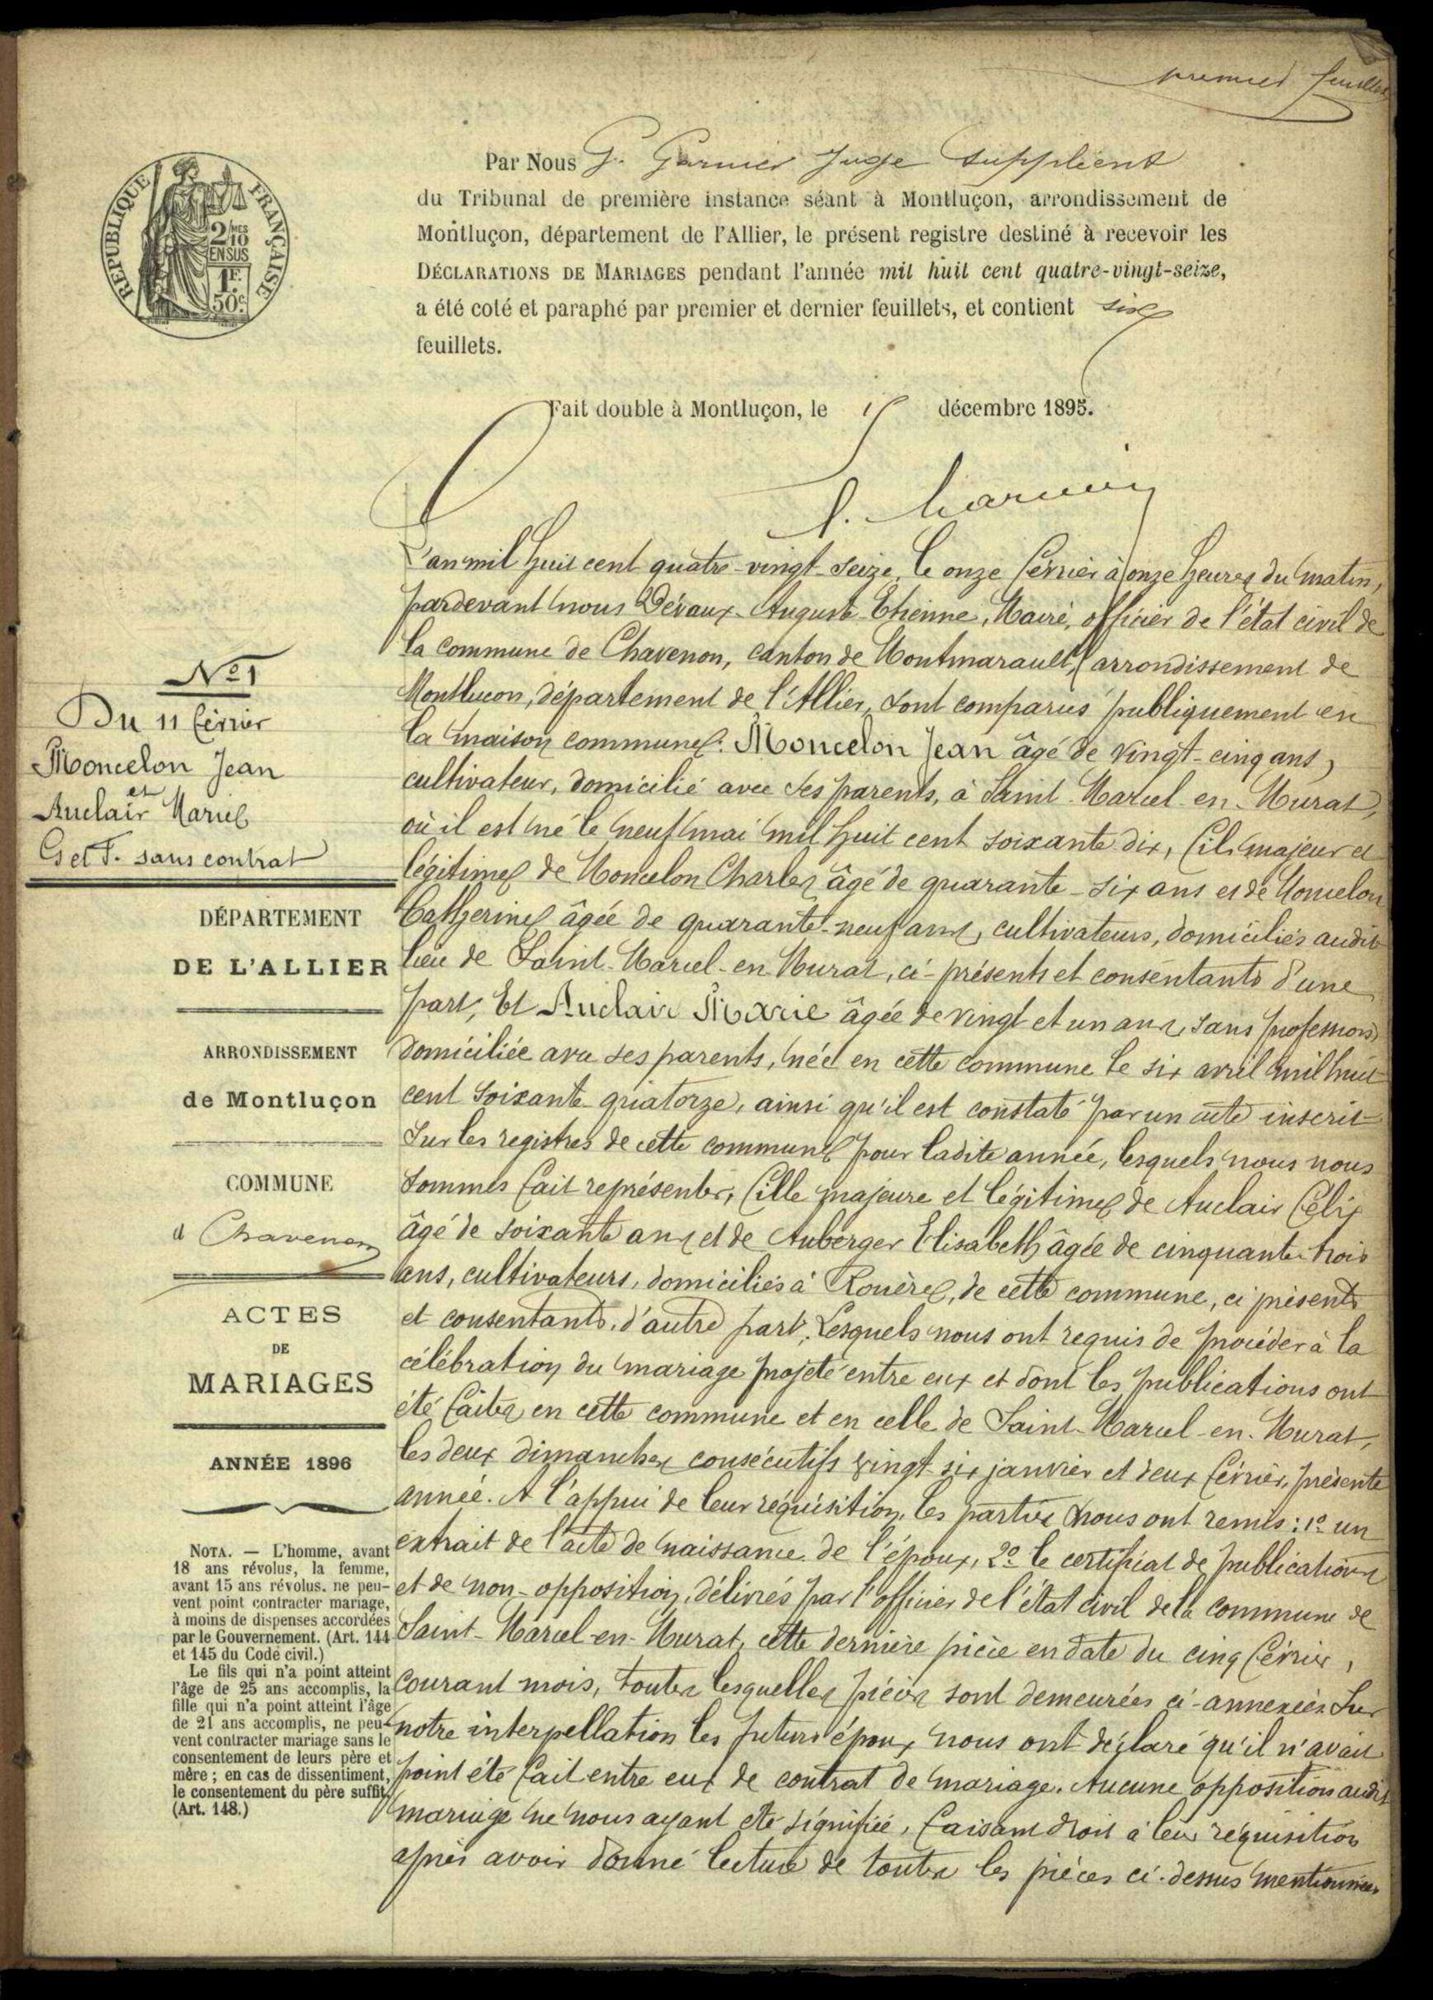 premier feuillet
RÉPUBLIQUE FRANÇAISE
2/10 MES
EN SUS
1 F.
50 c.
Par Nous G. Garnier Juge suppléant
du Tribunal de première instance séant à Montluçon, arrondissement de
Montluçon, département de l'Allier, le présent registre destiné à recevoir les
DÉCLARATIONS DE MARIAGES pendant l'année mil huit cent quatre-vingt-seize,
a été coté et paraphé par premier et dernier feuillets, et contient six
feuillets.
Fait double à Montluçon, le 15 décembre 1895.
N° 1
Du 11 février
Moncelon Jean
et
Auclair Marie
G et F. sans contrat
DÉPARTEMENT
DE L'ALLIER
ARRONDISSEMENT
de Montluçon
COMMUNE
d Chavenon
ACTES
DE
MARIAGES
ANNÉE 1896
NOTA. — L'homme, avant
18 ans révolus, la femme,
avant 15 ans révolus. ne peu-
vent point contracter mariage,
à moins de dispenses accordées
par le Gouvernement. (Art. 144
et 145 du Code civil.)
Le fils qui n'a point atteint
l'âge de 25 ans accomplis, la
fille qui n'a point atteint l'âge
de 21 ans accomplis, ne peu-
vent contracter mariage sans le
consentement de leurs père et
mère ; en cas de dissentiment,
le consentement du père suffit.
(Art. 148.)
L'an mil huit cent quatre-vingt-seize, le onze février à onze heures du matin,
pardevant nous Dévaux Auguste Etienne, Maire, officier de l'état civil de
la commune de Chavenon, canton de Montmarault, arrondissement de
Montluçon, département de l'Allier, sont comparus publiquement en
la maison commune : Moncelon Jean âgé de vingt-cinq ans,
cultivateur, domicilié avec ses parents, à Saint-Marcel-en-Murat,
où il est né le neuf mai mil huit cent soixante dix, fils majeur et
légitime de Moncelon Charles âgé de quarante-six ans et de Moncelon
Catherine âgée de quarante-neuf ans, cultivateurs, domiciliés audit
lieu de Saint-Marcel-en-Murat, ci-présents et consentants d'une
part, Et Auclair Marie âgée de vingt et un ans, sans profession
domiciliée avec ses parents, née en cette commune le six avril mil huit
cent soixante quatorze, ainsi qu'il est constaté par un acte inscrit
sur les registres de cette commune pour ladite année, lesquels nous nous
sommes fait représenter, fille majeure et légitime de Auclair Félix
âgé de soixante ans et de Auberger Elisabeth âgée de cinquante-trois
ans, cultivateurs, domiciliés à Rouère, de cette commune, ci présents
et consentants, d'autre part ; Lesquels nous ont requis de procéder à la
célébration du mariage projeté entre eux et dont les publications ont
été faites en cette commune et en celle de Saint-Marcel-en-Murat,
les deux dimanches consécutifs vingt-six janvier et deux février, présente
année. A l'appui de leur réquisition, les parties nous ont remis : 1° un
extrait de l'acte de naissance de l'époux, 2° le certificat de publications
et de non-opposition, délivrés par l'officier de l'état civil de la commune de
Saint-Marcel-en-Murat, cette dernière pièce en date du cinq février,
courant mois, toutes lesquelles pièces sont demeurées ci-annexées. Sur
notre interpellation les futurs époux nous ont déclaré qu'il n'avait
point été fait entre eux de contrat de mariage. Aucune opposition audit
mariage ne nous ayant été signifiée, faisant droit à leur réquisition
après avoir donné lecture de toutes les pièces ci-dessus mentionnées